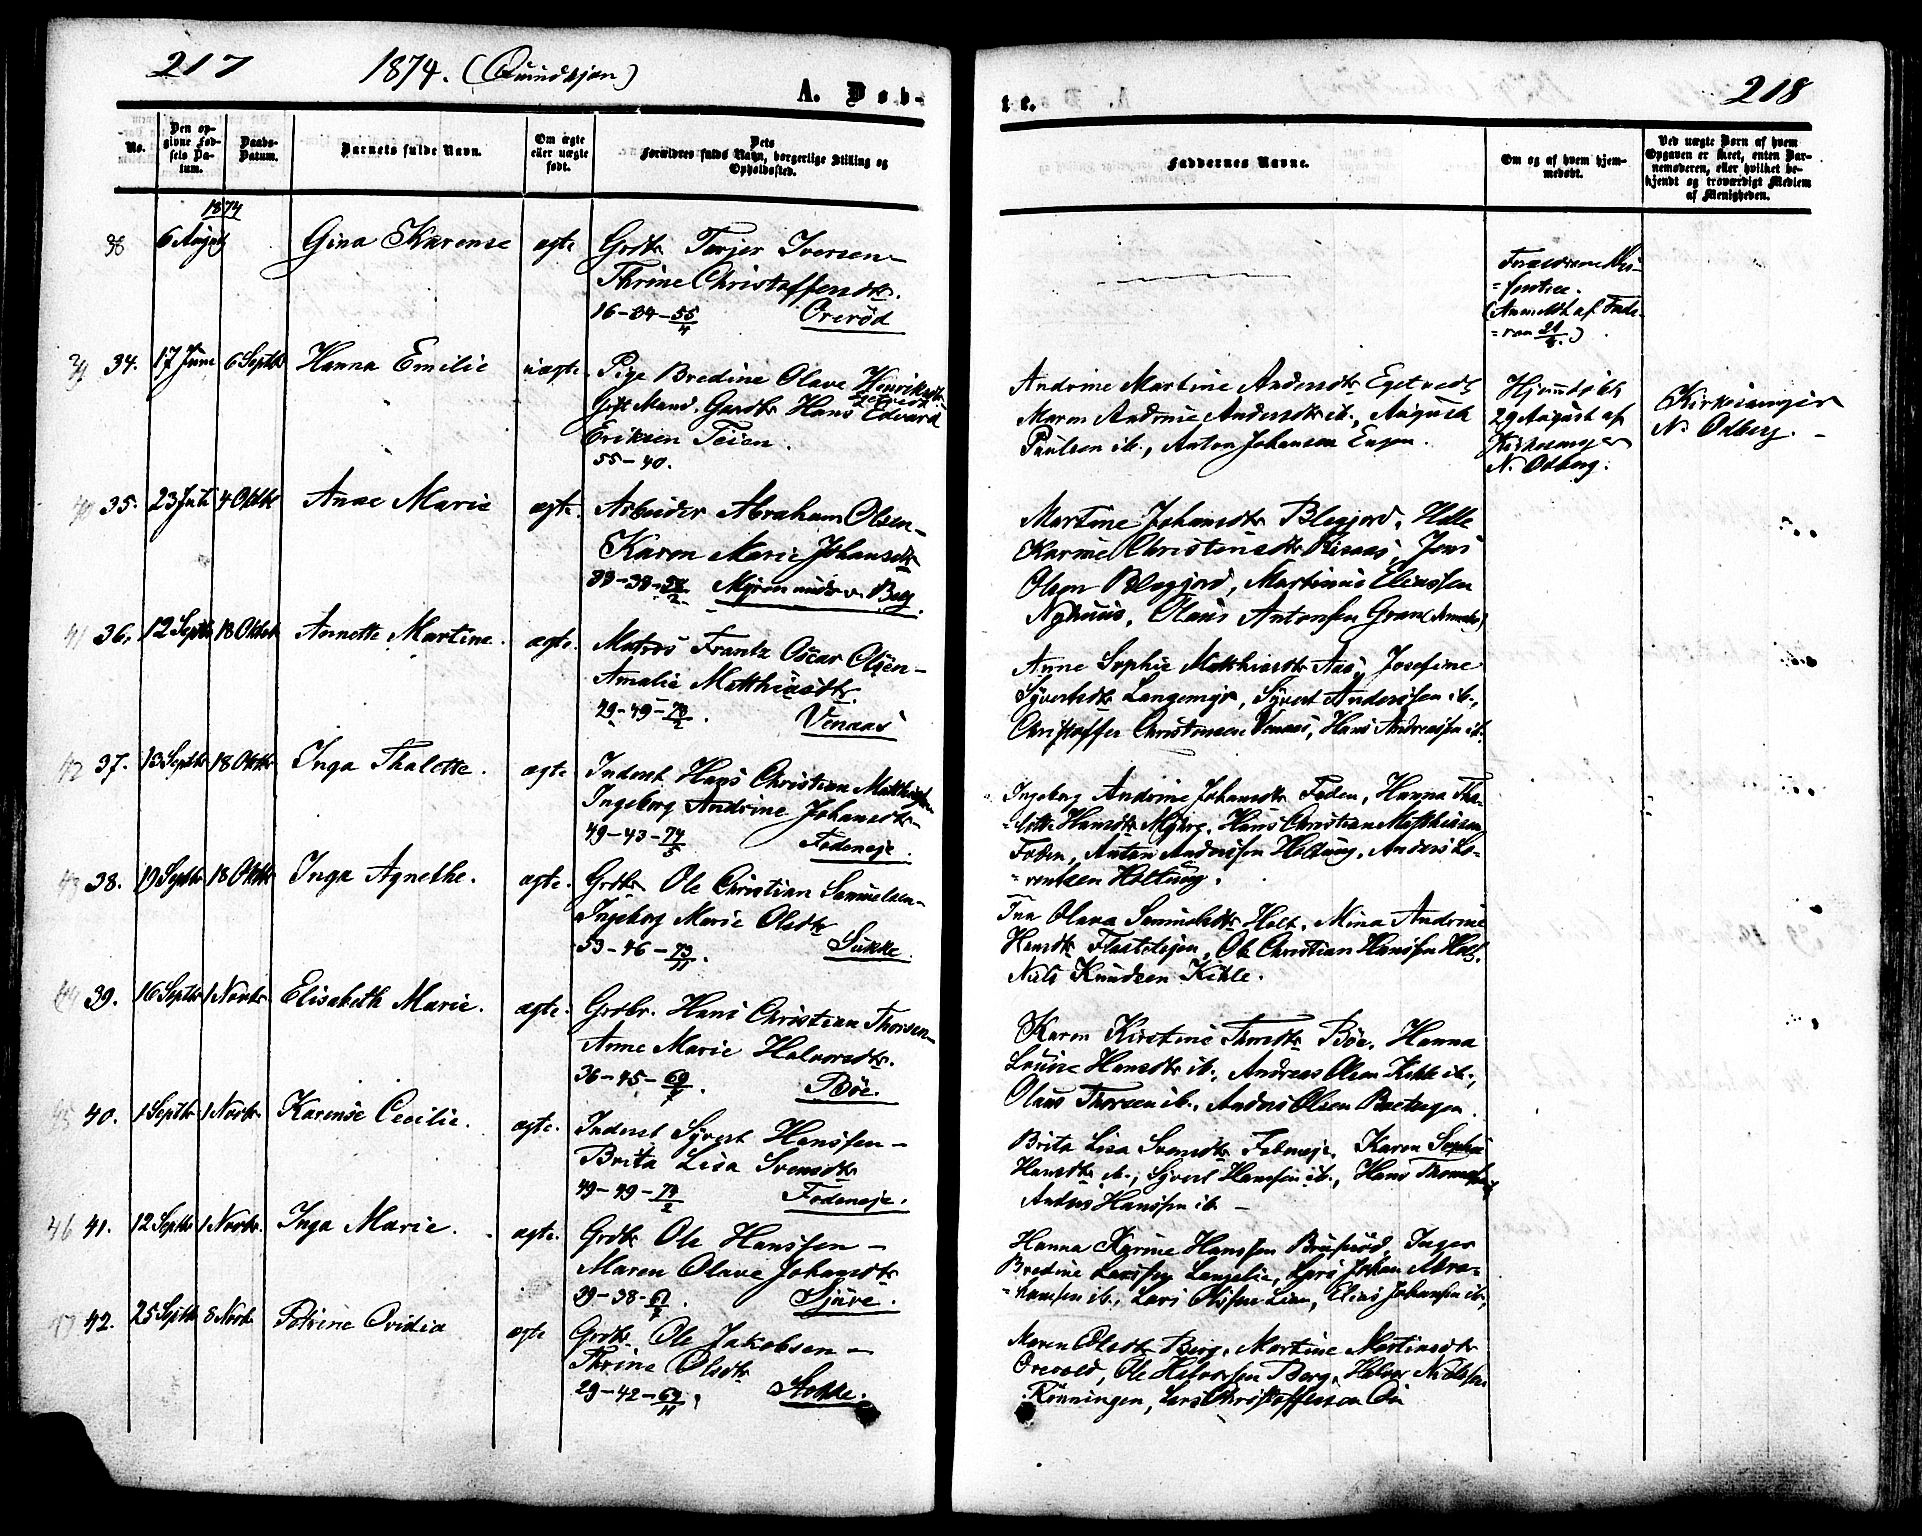 217
1874. (Qvindkjøn)
A. Døb-
No.
Den op-
givne Fød-
sels Da-
tum.
Daabs-
Datum.
Barnets fulde Navn.
Om ægte
eller uægte
født.
Dets
Forældres fulde Navn, borgerlige Stilling og
Opholdssted.
1874
38 6 August Gina Karense ægte Grdbr Terjer Iversen –
Thrine Christoffersdtr.
16-34-55/4 Orerød
34. 17 Juni 6 Septbr Hanna Emilie uægte Pige Bredine Olave Henriksdtr
Gift Mand. Gaardbr Hans Edvard
Eriksen Teien.
55-40.
35. 23 Juli 4 Oktbr Anne Marie ægte. Arbeider Abraham Olsen –
Karen Marie Johansdtr
Myren under Berg.
41 36. 12 Septbr 18 Oktbr Annette Martine. ægte. Matros Frantz Oscar Olsen –
Amalie Matthiasdtr.
29-49- Venaas
42 37. 13 Septbr 18 Oktbr Inga Thalette. ægte Inderst Hans Christian Matthiasen
Ingeborg Andrine Johansdtr –
49-43-74/5 Fodeneje.
43 38. 19 Septbr 18 Oktbr Inga Agnethe. ægte. Grdbr Ole Christian Samuelsen –
Ingeborg Marie Olsdtr
53-46-73/11. Sukke.
44 39. 16 Septbr 1 Novbr Elisabeth Marie. ægte. Grdbr. Hans Christian Thorsen –
Anne Marie Halvorsdtr.
36-45- Bøe.
45 40. 1 Septbr 1 Novbr. Karense Cecilie. ægte. Inderst Syvert Hanssen –
Brita Lisa Svensdtr
49-49-74/2 Fodeneje.
46 41. 12 Septbr 1 Novbr. Inga Marie. ægte. Grdbr Ole Hanssen –
Maren Olave Johansdtr
39-38- Sjuve.
47 42. 25 Septbr 8 Novbr. Petrine Ovidia ægte Grdbr Ole Jakobsen –
Thrine Olsdtr
29-42-69/11 Stokke.
218
te.
Faddernes Navne.
Om og af hvem hjem-
medøbt.
Ved uægte Børn af hvem
Opgaven er skeet, enten Bar-
nemoderen, eller hvilket be-
kjendt og troværdigt Medlem
af Menigheden.
Forældrene
(Anmeldt af Fade-
ren
Andrine Martine Andersdtr Egetvedt
Maren Andrine Andersdtr ib., August
Paulsen ib., Anton Johansen Engen.
Hjemdøbt
29 August af
Kirkesanger
N. Odberg.
Kirkesanger
N. Odberg. –
Martine Johansdtr Blegjord, Helle
Karine Christensdtr Jens
Olsen Blegjord, Martinius Eliassen
Nyhuus, Olaus Antonsen Gran
Anne Sophie Matthiasdtr Aas, Josefine
Syvertsdtr Langemyr, Syvert Anderssen ib.,
Christoffer Christensen Venaas, Hans Andreassen ib.
Ingeborg Andrine Johansdtr Foden, Hanna Tha-
=lette Hansdtr Myhre, Hans Christian Matthiasen
Foden, Anton Anderssen Holtung, Anders Lo-
=rentzen Holtung.
Ina Olava Samuelsdtr Holt, Mina Andrine
Hansdtr Ole Christian Hanssen Holt,
Nils Knudsen Kihle.
Karen Kirstine Thorsdtr Bøe, Hanna
Louise Hansdtr ib., Andreas Olsen Kihle ib.,
Olaus Thorsen ib., Anders Olsen
Brita Lisa Svensdtr Fodeneje, Karen Sophie
Hansdtr ib., Syvert Hanssen ib., Hans
Anders Hanssen ib. –
Hanna Karine Hanssen Bruserød, Inger
Bredine Larssen Langelie, Lars Johan Abra-
=hamsen ib., Lars Olssen Lian, Elias Johansen ib.,
Maren Olsdtr Berg, Martine Martinsdtr
Orevold, Ole Halvorsen Berg, Halvor Nielsen
Rønningen, Lars Christoffersen